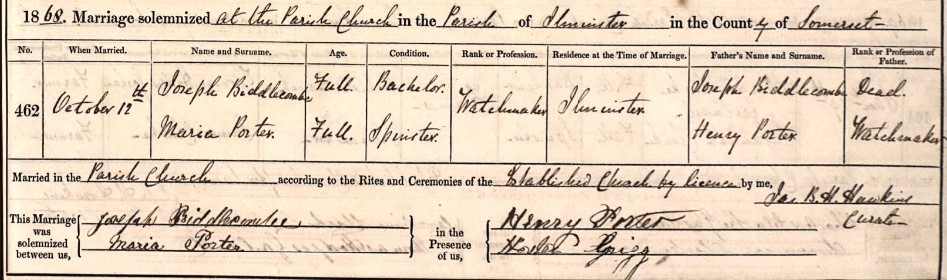 1868. Marriage solemnized at the Parish Church in the Parish of Ilminster in the County of Somerset
No. When Married. Name and Surname. Age. Condition. Rank or Profession. Residence at the Time of Marriage. Father's Name and Surname. Rank or Profession of Father.
462 October 12th Joseph Biddlecombe Full. Bachelor. Watchmaker Ilminster Joseph Biddlecombe Dead.
Maria Porter. Full. Spinster. Henry Porter Watchmaker
Married in the Parish Church according to the Rites and Ceremonies of the Established Church by licence by me,
Jas B. H. Hawkins
Curate
This Marriage was solemnized between us, Joseph Biddlecombe
Maria Porter
in the Presence of us, Henry Porter
Grigg